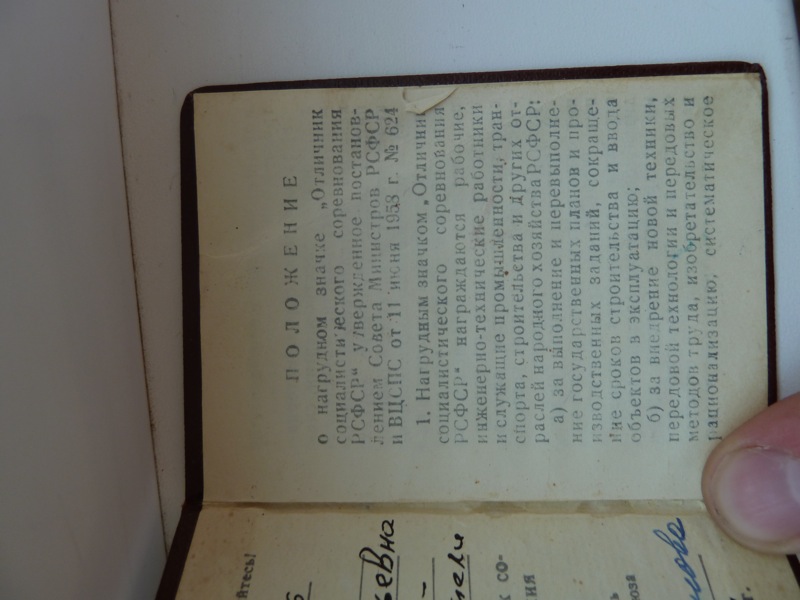 ПОЛОЖЕНИЕ
о нагрудном значке „Отличник
социалистического соревнования
РСФСР“ утвержденное постанов-
лением Совета Министров РСФСР
и ВЦСПС от 11 июня 1958 г. № 624
1. Нагрудным значком „Отличник
социалистического соревнования
РСФСР“ награждаются рабочие,
инженерно-технические работники
и служащие промышленности, тран-
спорта, строительства и других от-
раслей народного хозяйства РСФСР:
а) за выполнение и перевыполне-
ние государственных планов и про-
изводственных заданий, сокраще-
ние сроков строительства и ввода
объектов в эксплуатацию;
б) за внедрение новой техники,
передовой технологии и передовых
методов труда, изобретательство и
рационализацию, систематическое
йтесь!
евна
к со-
ия
ь
юза
г.